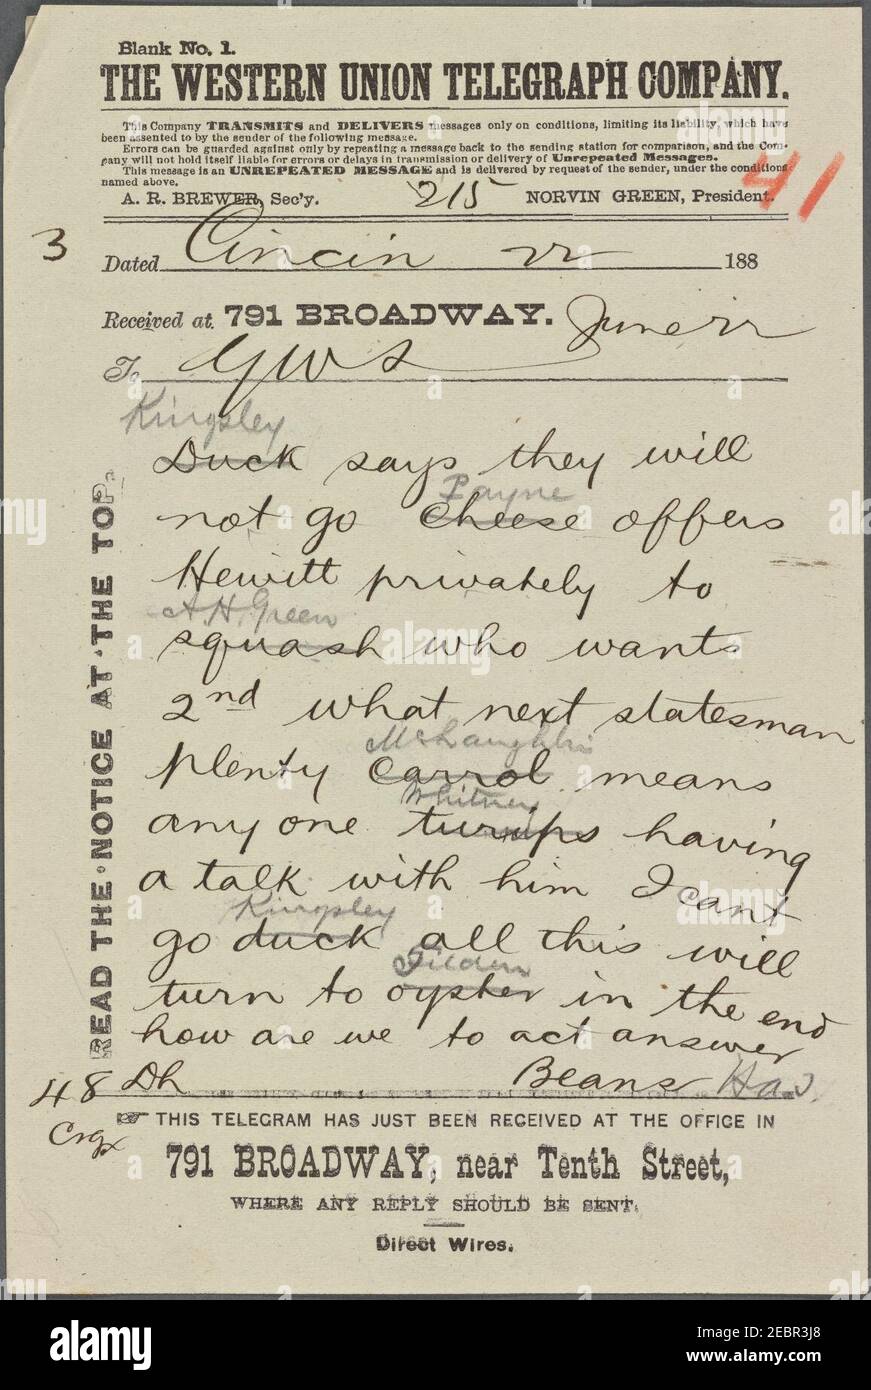 Blank No. 1.
THE WESTERN UNION TELEGRAPH COMPANY.
This Company TRANSMITS and DELIVERS messages only on conditions, limiting its liability, which have
been assented to by the sender of the following message.
Errors can be guarded against only by repeating a message back to the sending station for comparison, and the Com-
pany will not hold itself liable for errors or delays in transmission or delivery of Unrepeated Messages.
This message is an UNREPEATED MESSAGE and is delivered by request of the sender, under the conditions
named above.
41
A. R. BREWER, Sec'y. 215 NORVIN GREEN, President.
3
Dated Cincin 22 188
Received at 791 BROADWAY. June 22
To GWS
Kingsley
Duck says they will
Payne
not go cheese offers
Hewitt privately to
A.H. Green
squash who wants
2nd what next statesman
McLaughlin
plenty Carrol means
Whitney
any one turnips having
a talk with him I cant
Kingsley
go duck all this will
Tilden
turn to oyster in the end
how are we to act answer
48 Dh Beans
READ THE NOTICE AT THE TOP.
THIS TELEGRAM HAS JUST BEEN RECEIVED AT THE OFFICE IN
791 BROADWAY, near Tenth Street,
WHERE ANY REPLY SHOULD BE SENT.
Direct Wires.
alamy
Image ID: 2EBR3J8
www.alamy.com